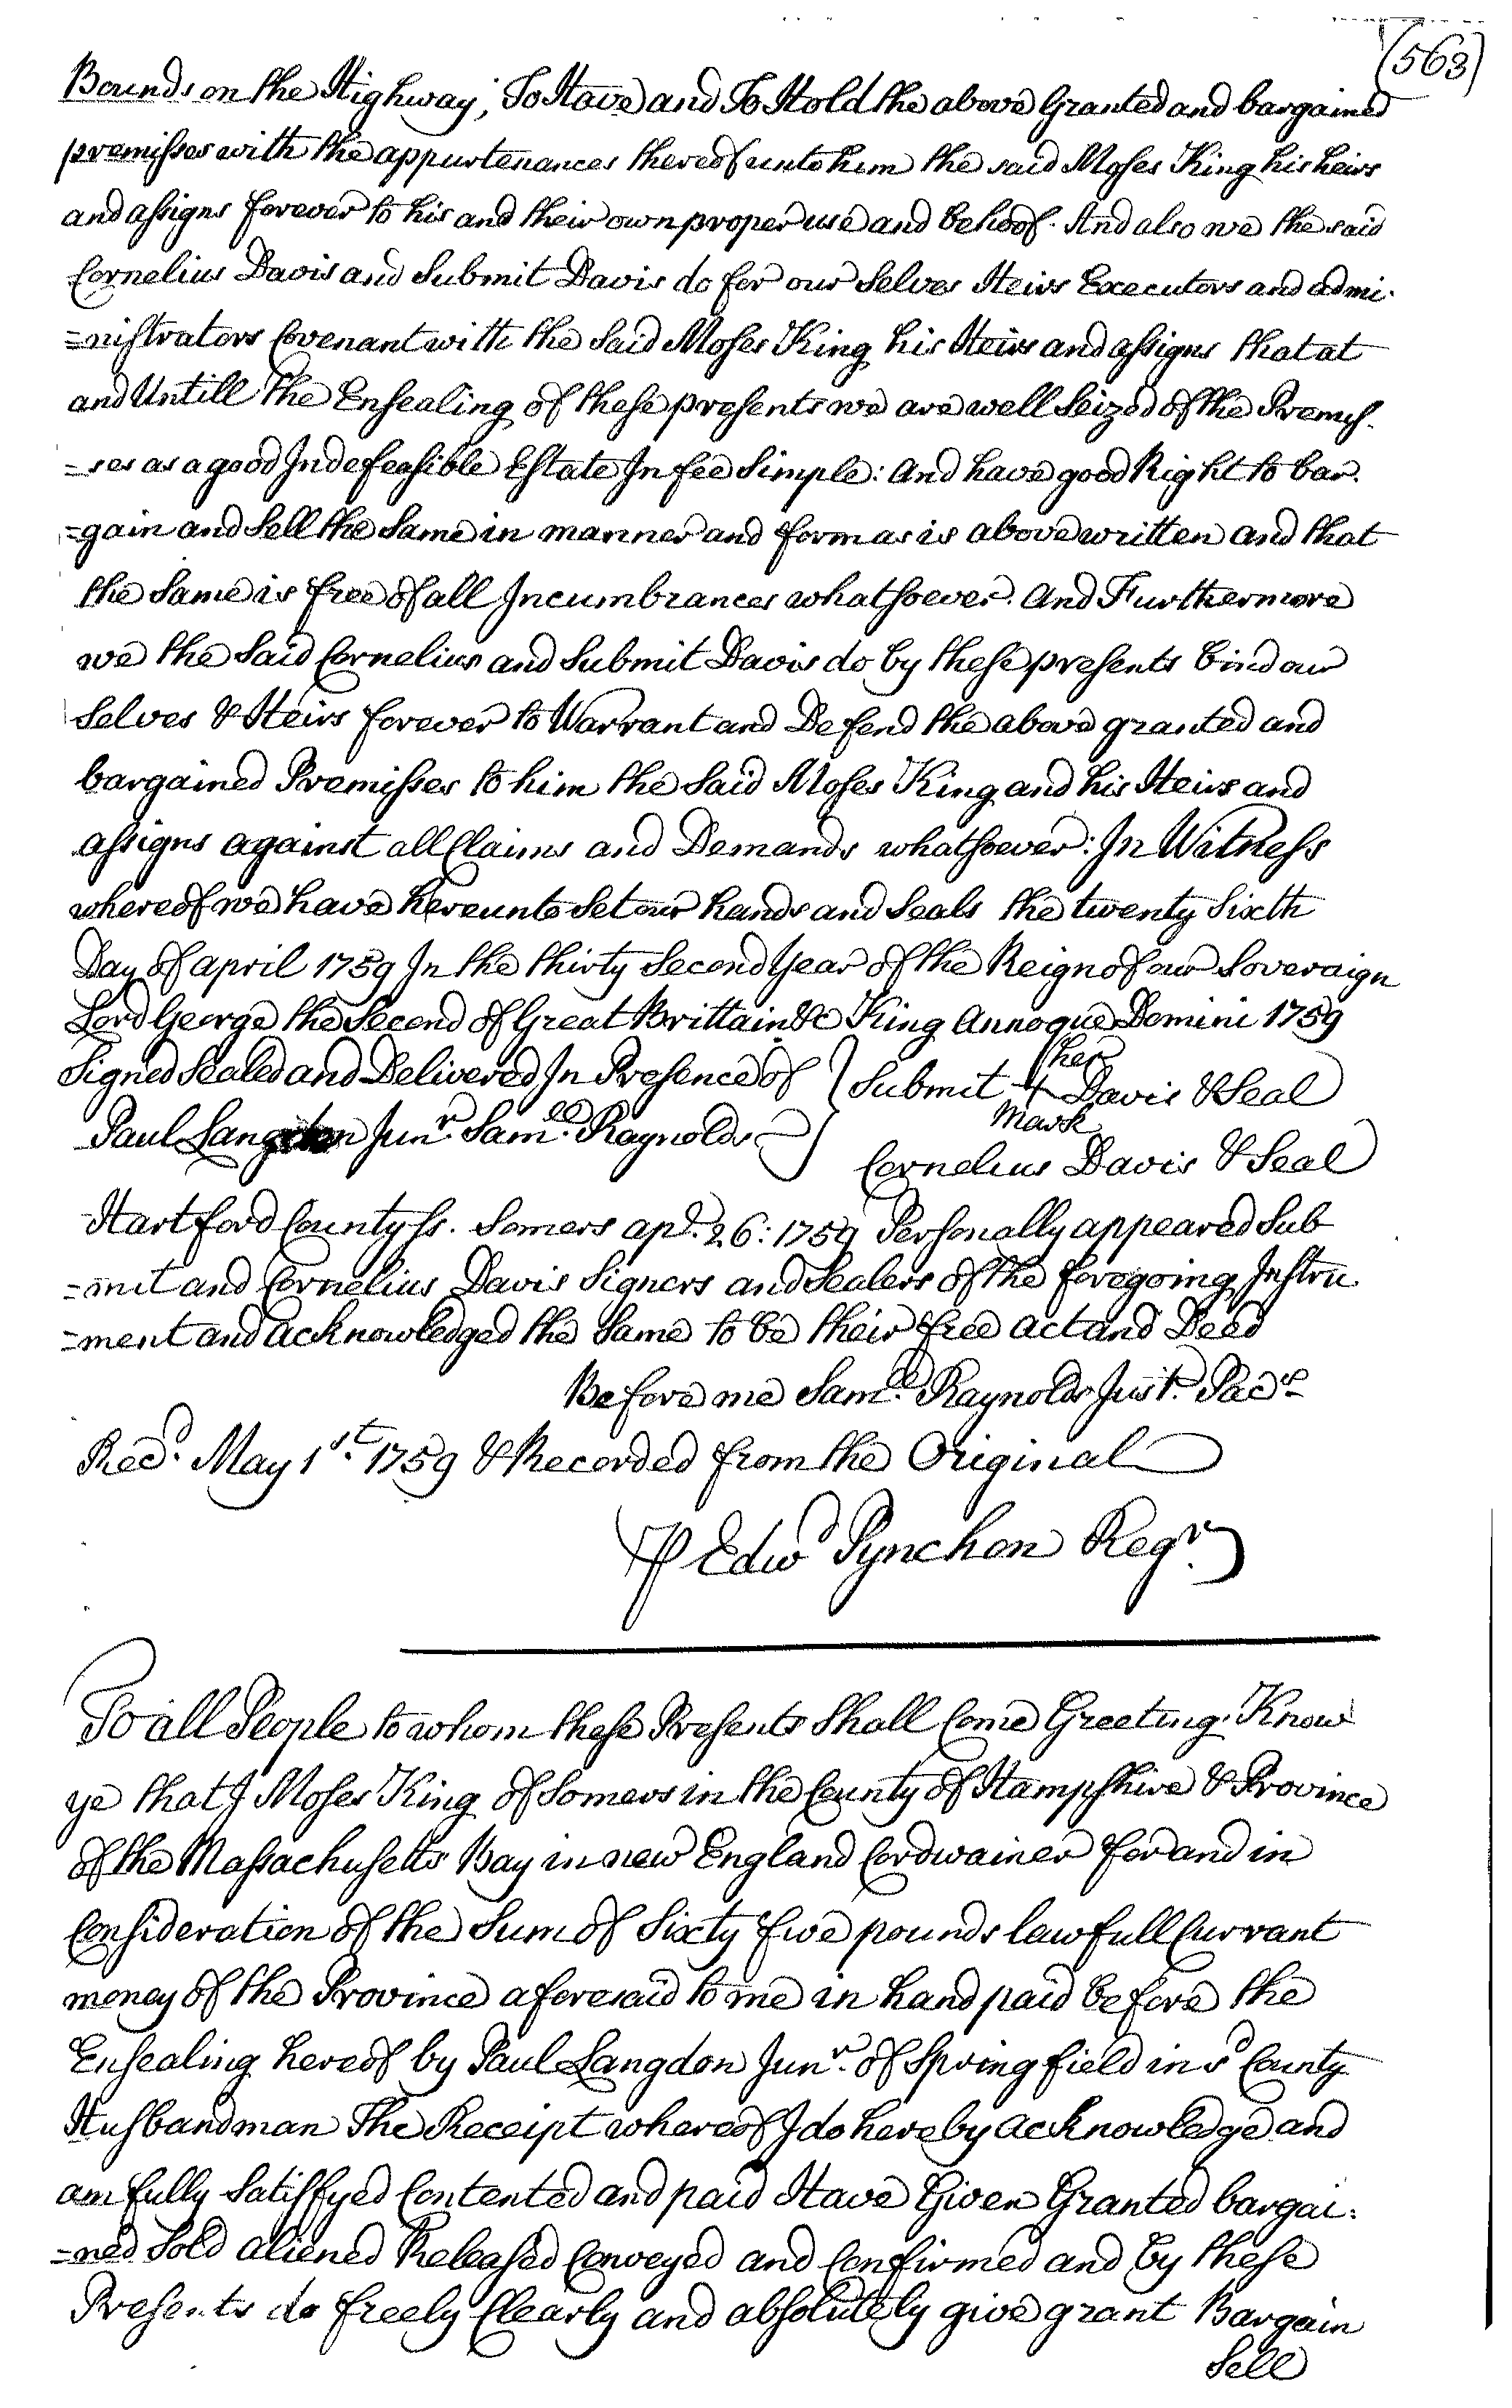 (563)
Bounds on the Highway; To Have and To Hold the above Granted and bargained
premisses with the appurtenances thereof unto him the said Moses King his heirs
and assigns forever to his and their own proper use and behoof. And also we the said
Cornelius Davis and Submit Davis do for our Selves Heirs Executors and admi-
=nistrators Covenant with the Said Moses King his Heirs and assigns that at
and Untill the Ensealing of these presents we are well Seized of the Premis-
=ses as a good Indefeasible Estate In fee Simple: And have good Right to bar-
=gain and Sell the Same in manner and form as is above written and that
the Same is free of all Incumbrances whatsoever. And Furthermore
we the Said Cornelius and Submit Davis do by these presents bind our
Selves & Heirs forever to Warrant and Defend the above granted and
bargained Premisses to him the Said Moses King and his Heirs and
assigns against all Claims and Demands whatsoever: In Witness
whereof we have hereunto Set our hands and Seals the twenty Sixth
Day of april 1759 In the thirty Second Year of the Reign of our Soveraign
Lord George the Second of Great Brittain &c King Annoque Domini 1759
Signed Sealed and Delivered In Presence of } Submit her + mark Davis & Seal
Paul Langdon Junr. Samll. Raynolds } Cornelius Davis & Seal
Hartford County ss. Somers apl. 26: 1759 Personally appeared Sub
=mit and Cornelius Davis Signers and Sealers of the foregoing Instru
=ment and acknowledged the Same to be their free act and Deed
Before me Samll. Raynolds Just. Pacs
Recd. May 1st. 1759 & Recorded from the Original
P Edwd Pynchon Regr.
To all People to whom these Presents Shall Come Greeting. Know
ye that I Moses King of Somers in the County of Hampshire & Province
of the Massachusetts Bay in new England Cordwainer for and in
Consideration of the Sum of Sixty five pounds lawfull Currant
money of the Province aforesaid to me in hand paid before the
Ensealing hereof by Paul Langdon Junr. of Springfield in sd County
Husbandman The Receipt whereof I do hereby acknowledge and
am fully Satisfyed Contented and paid Have Given Granted bargai:
=ned Sold aliened Released Conveyed and Confirmed and by these
Presents do freely Clearly and absolutely give grant Bargain
Sell